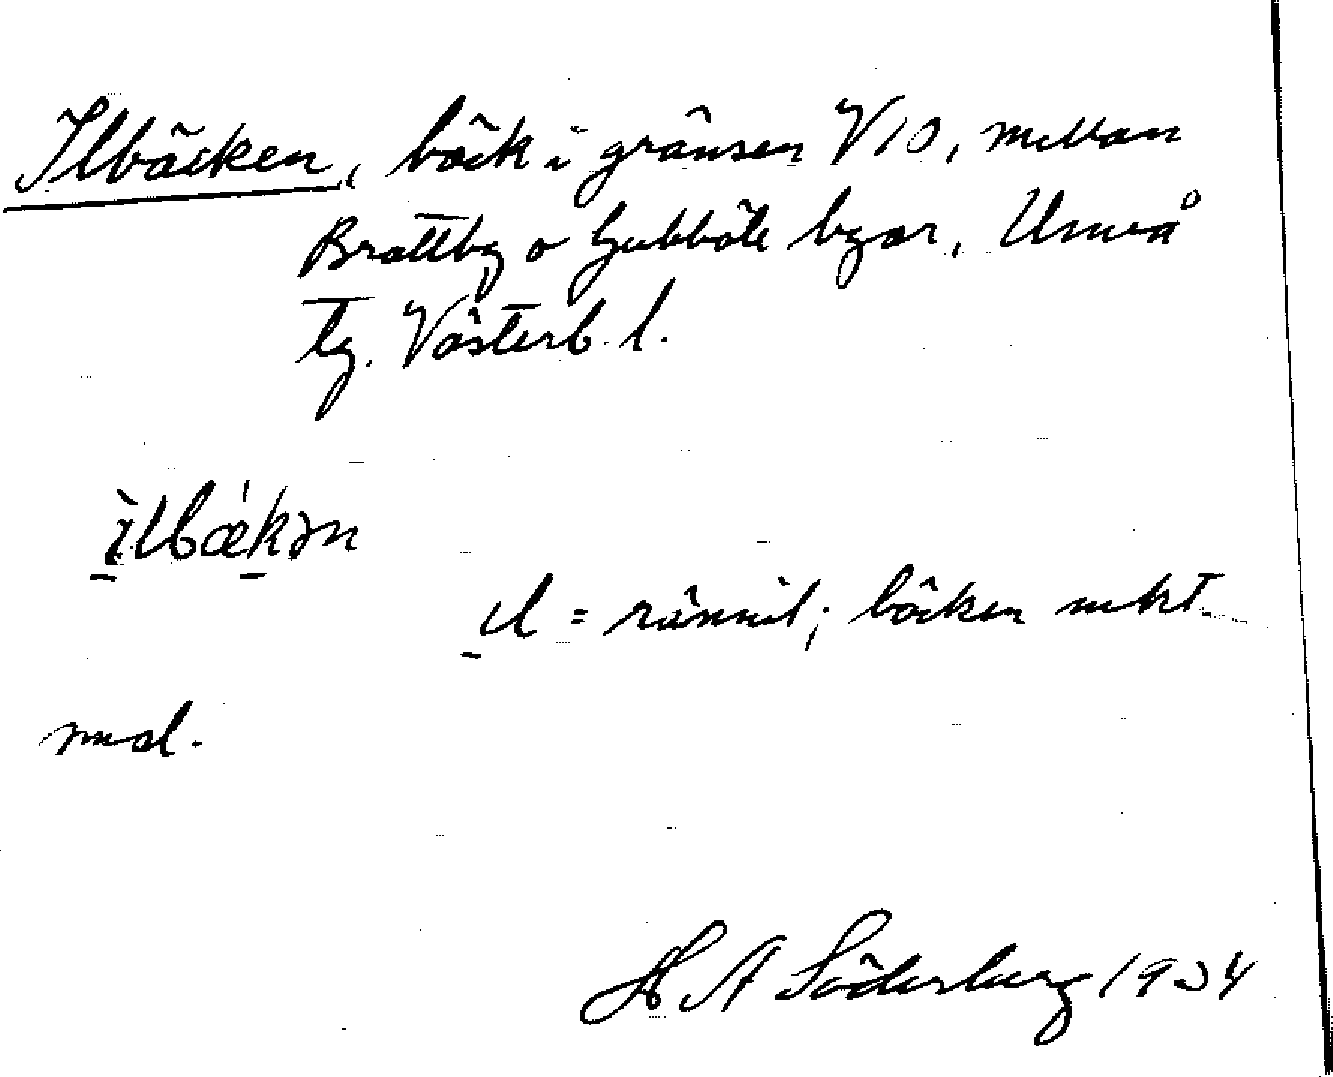 Ilbäcken, bäck i gränsen V10, mellan
Brattby o Gubböle byar, Umeå
tg. Västerb. l.
ìlbækən
il = rännil; bäcken
H A Söderberg 1934